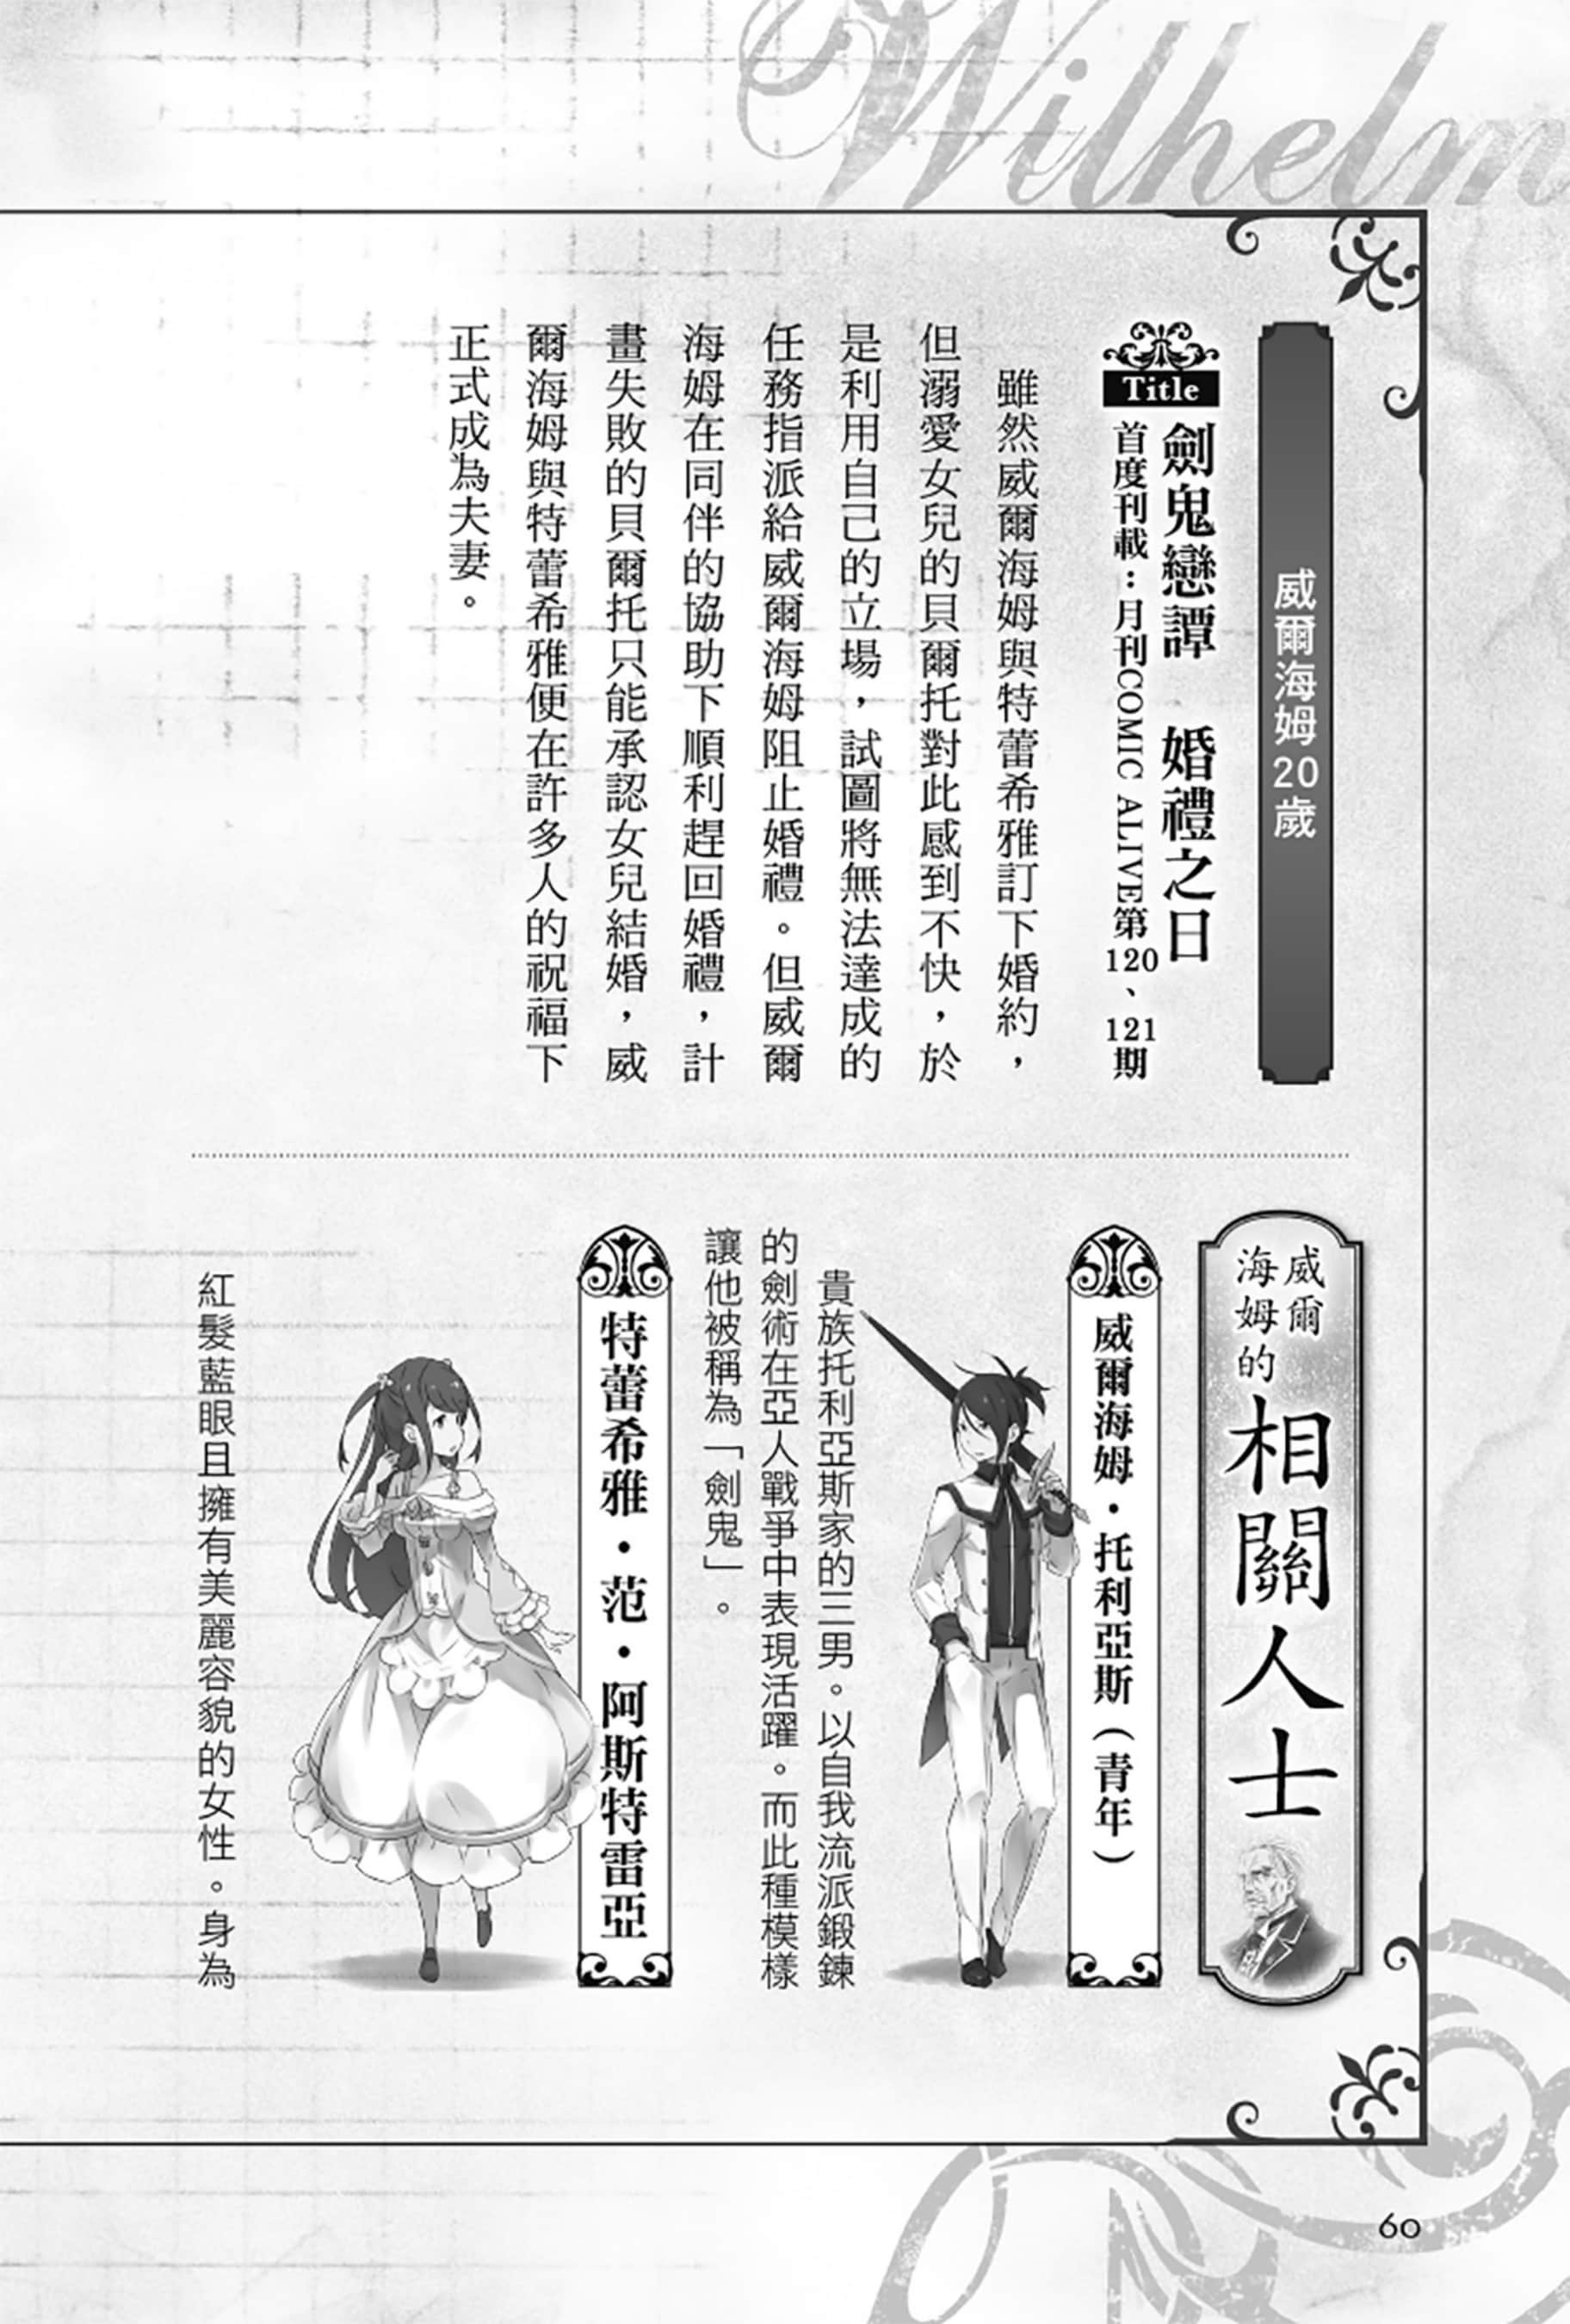 Wilhelm
威爾海姆20歲
Title
劍鬼戀譚　婚禮之日
首度刊載：月刊COMIC ALIVE第120、121期
雖然威爾海姆與特蕾希雅訂下婚約，
但溺愛女兒的貝爾托對此感到不快，於
是利用自己的立場，試圖將無法達成的
任務指派給威爾海姆阻止婚禮。但威爾
海姆在同伴的協助下順利趕回婚禮，計
畫失敗的貝爾托只能承認女兒結婚，威
爾海姆與特蕾希雅便在許多人的祝福下
正式成為夫妻。
威爾
海姆的
相關人士
威爾海姆・托利亞斯（青年）
貴族托利亞斯家的三男。以自我流派鍛鍊
的劍術在亞人戰爭中表現活躍。而此種模樣
讓他被稱為「劍鬼」。
特蕾希雅・范・阿斯特雷亞
紅髮藍眼且擁有美麗容貌的女性。身為
60